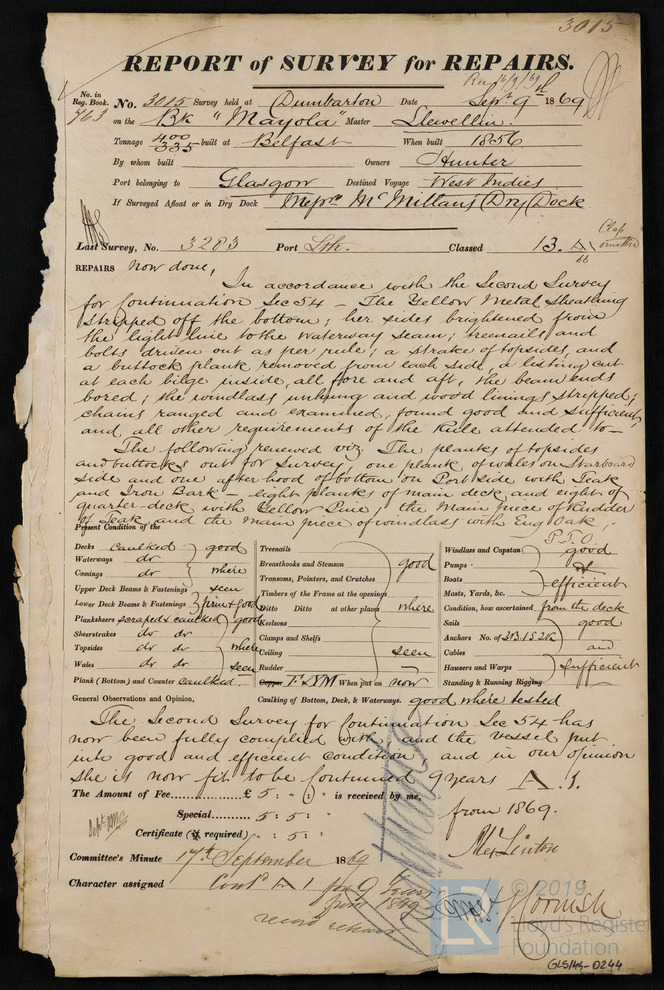 3015
REPORT of SURVEY for REPAIRS.
No. in Reg. Book.
763
No. 3015 Survey held at Dumbarton Date Sept. 9th 1869
on the Bk "Mayola" Master Llewellin
Tonnage 400 335 built at Belfast When built 1856
By whom built Owners Hunter
Port belonging to Glasgow Destined Voyage West Indies
If Surveyed Afloat or in Dry Dock Messrs McMillans Dry Dock
Last Survey, No. 3283 Port Lth. Classed 13. A1
REPAIRS now done,
In accordance with the Second Survey
for Continuation Sec 54 – The Yellow Metal sheathing
stripped off the bottom; her sides brightened from
the light line to the waterway seam; treenails and
bolts driven out as per rule; a strake of topsides, and
a buttock plank removed from each side, a listing cut
at each bilge inside, all fore and aft, the beam ends
bored; the windlass unhung and wood linings stripped;
chains ranged and examined, found good and sufficient,
and all other requirements of the Rule attended to –
The following renewed viz. The planks of topsides
and buttocks out for survey, one plank of wales on Starboard
side and one after hood of bottom on Port side with Teak
and Iron Bark – eight planks of main deck and eight of
quarter-deck with Yellow Pine, the Main piece of Rudder
of Teak and the main piece of windlass with Eng Oak;
P.T.O.
Present Condition of the
Decks caulked good
Waterways do
Comings do where
Upper Deck Beams & Fastenings seen
Lower Deck Beams & Fastenings firm & good
Planksheers scraped & caulked good
Sheerstrakes do do
Topsides do do where
Wales do do seen
Plank (Bottom) and Counter caulked
Treenails
Breasthooks and Stemson good
Transoms, Pointers, and Crutches
Timbers of the Frame at the openings
Ditto Ditto at other places where
Keelsons
Clamps and Shelfs
Ceiling seen
Rudder
Copper F & YM When put on now
Caulking of Bottom, Deck, & Waterways. good where tested
Windlass and Capstan good
Pumps
Boats efficient
Masts, Yards, &c.
Condition, how ascertained from the deck
Sails good
Anchors No. of 3B.1S.2K
Cables and
Hawsers and Warps sufficient
Standing & Running Rigging
General Observations and Opinion,
The Second Survey for Continuation Sec 54 has
now been fully complied with, and the vessel put
into good and efficient condition and in our opinion
she is now fit to be Continued 9 years A.1.
from 1869.
The Amount of Fee £ 5: : is received by me,
Special 5: 5:
Certificate (if required) : 5:
Committee's Minute 17th September 1869
Character assigned Contd A1 for 9 Years
from 1869
© 2019
Lloyd's Register
Foundation
LR
GLS/44-0244